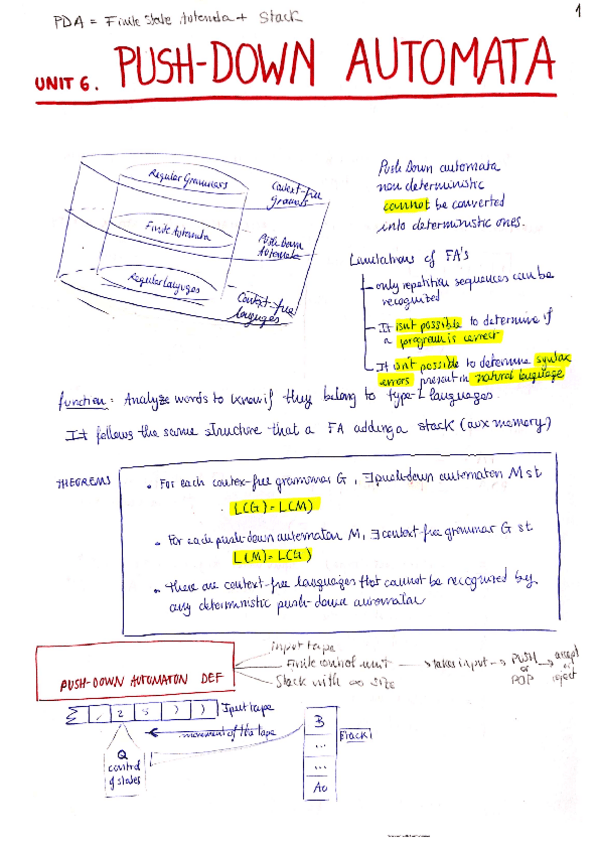 PDA = Finite State Automata + Stack
1
UNIT 6. PUSH-DOWN AUTOMATA
Regular Grammars
Context-free
grammars
Finite Automata
Push Down
Automata
Regular Languages
Context-free
languages
Push Down automata
non deterministic
cannot be converted
into deterministic ones.
Limitations of FA's
only repetitive sequences can be
recognized
It isn't possible to determine if
a program is correct
It isn't possible to determine syntax
errors present in natural language
function: Analyze words to know if they belong to type-2 languages.
It follows the same structure that a FA adding a stack (aux memory)
THEOREMS
• For each contex-free grammar G, ∃ push-down automaton M st
L(G) = L(M)
• For each push-down automaton M, ∃ context-free grammar G st
L(M) = L(G)
• There are context-free languages that cannot be recognized by
any deterministic push-down automaton
PUSH-DOWN AUTOMATON DEF
input tape
Finite control unit
Stack with ∞ size
takes input → PUSH or POP → accept or reject
Σ , 2 5 ) ) Iput tape
movement of the tape
Q
control
of states
B
...
...
A0